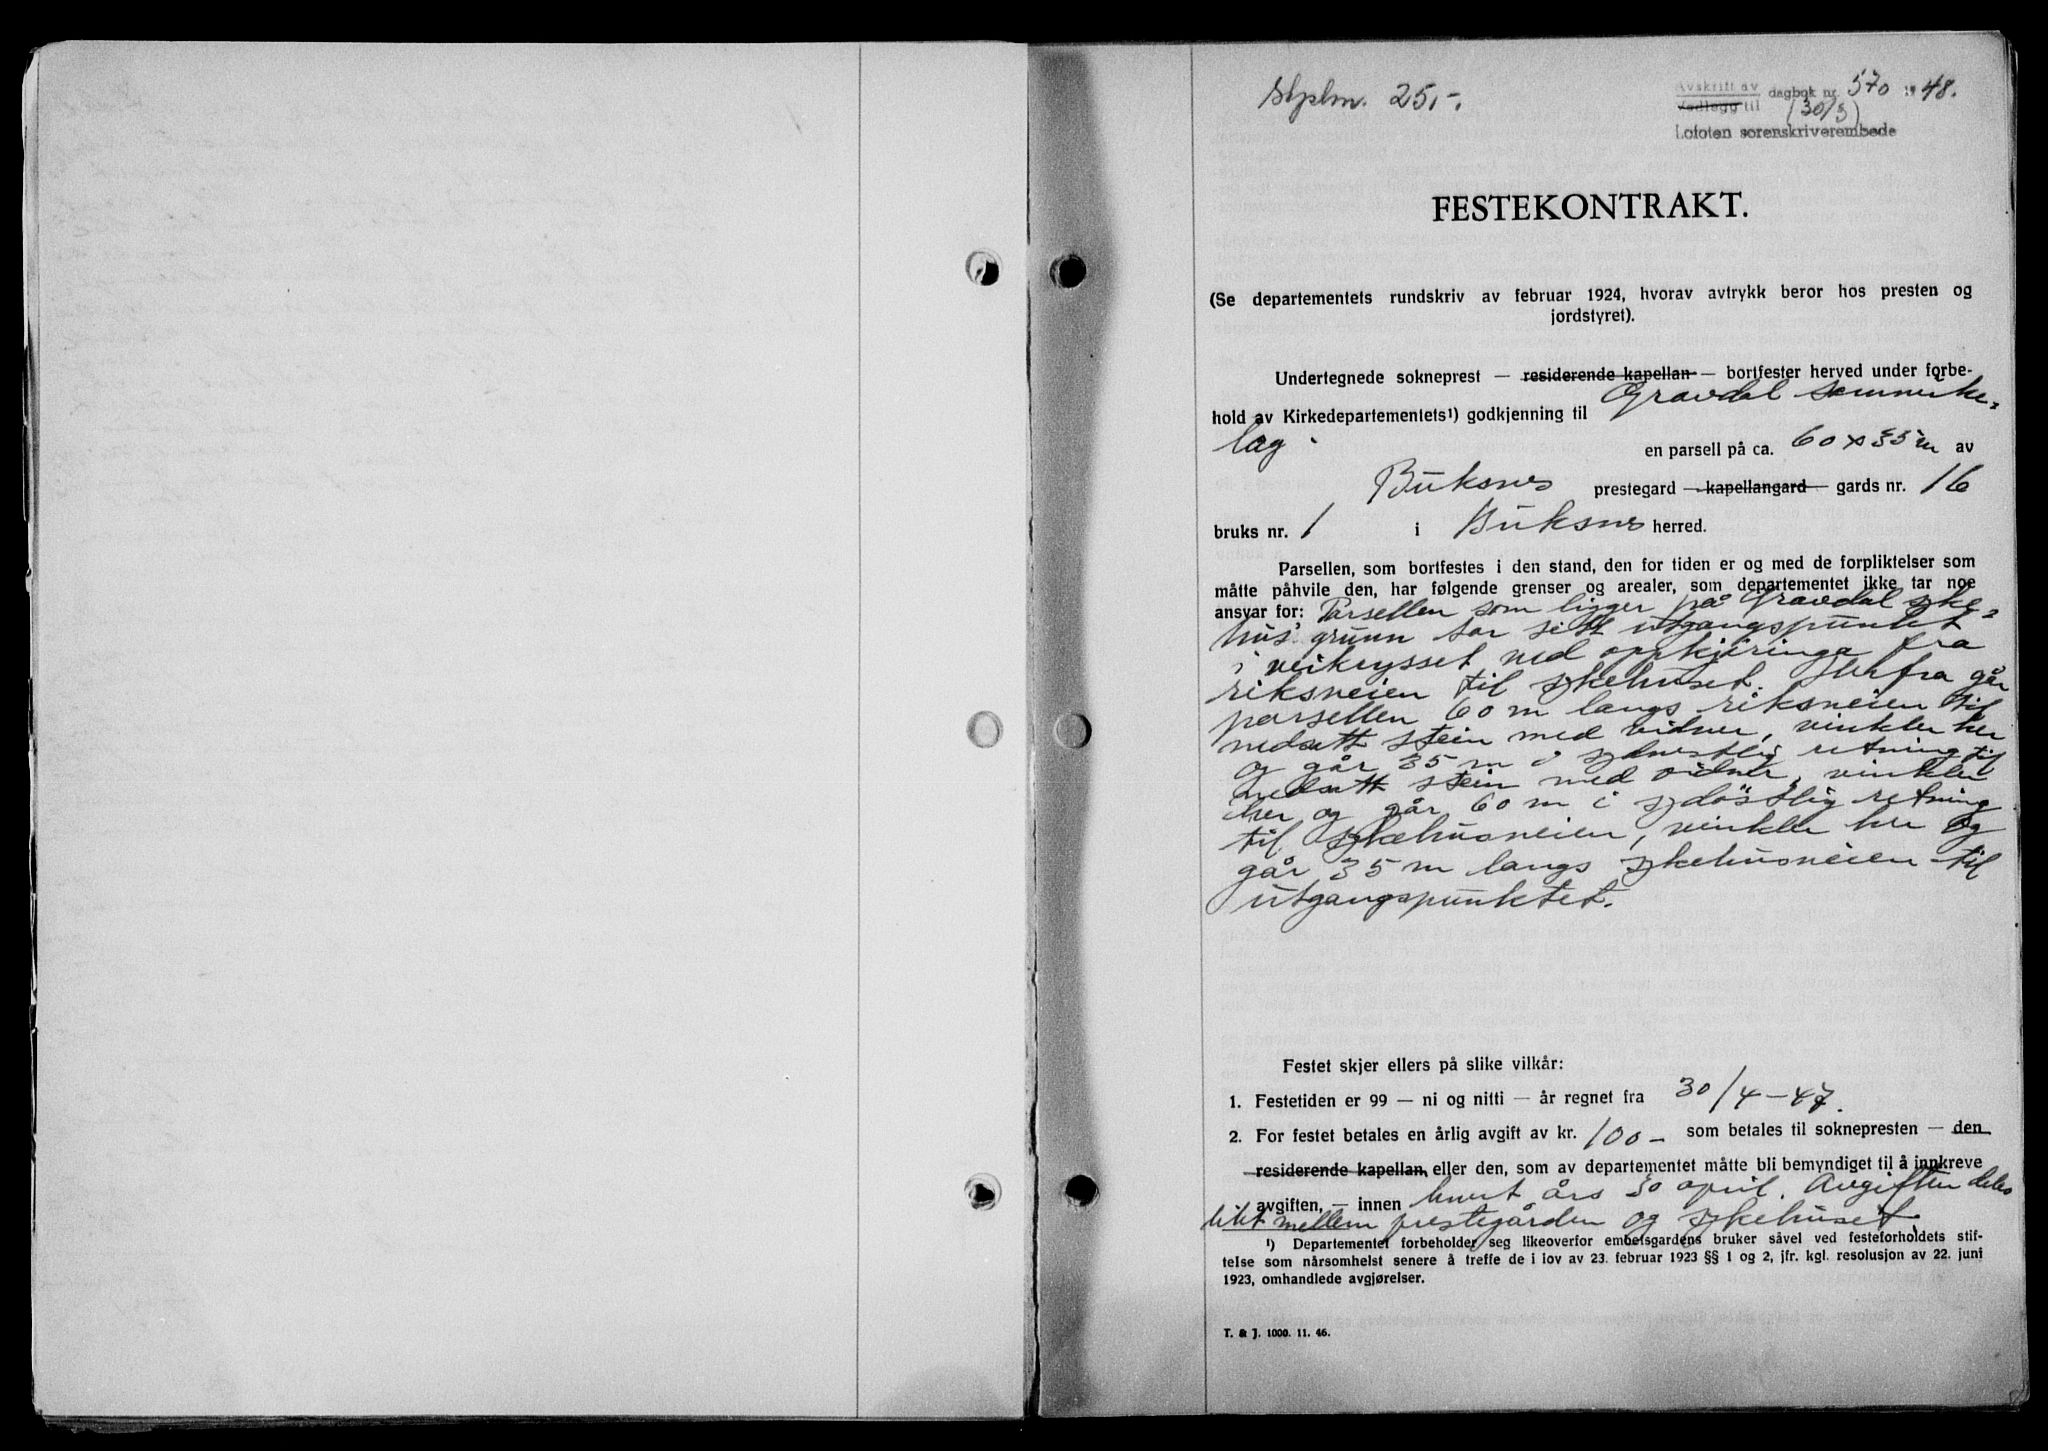 Stplm. 25,-.
Avskrift av dagbok nr. 570 1948.
Vedlegg til (30/3)
Lofoten sorenskriverembede
FESTEKONTRAKT.
(Se departementets rundskriv av februar 1924, hvorav avtrykk beror hos presten og
jordstyret).
Undertegnede sokneprest — residerende kapellan — bortfester herved under forbe-
hold av Kirkedepartementets¹) godkjenning til Gravdal
lag en parsell på ca. 60 x 35 m av
Buksnes prestegard — kapellangard — gards nr. 16
bruks nr. 1 i Buksnes herred.
Parsellen, som bortfestes i den stand, den for tiden er og med de forpliktelser som
måtte påhvile den, har følgende grenser og arealer, som departementet ikke tar noe
ansvar for: Parsellen som ligger på Gravdal syke=
hus' grunn tar sitt utgangspunkt
i veikrysset ved oppkjøringa fra
riksveien til sykehuset. Herfra går
parsellen 60 m langs riksveien til
nedsatt stein med vidner, vinkler her
og går 35 m i sydvestlig retning til
nedsatt stein med vidner, vinkler
her og går 60 m i sydöstlig retning
til sykehusveien, vinkler her og
går 35 m langs sykehusveien til
utgangspunktet.
Festet skjer ellers på slike vilkår:
1. Festetiden er 99 — ni og nitti — år regnet fra 30/4-47.
2. For festet betales en årlig avgift av kr. 100- som betales til soknepresten — den
residerende kapellan, eller den, som av departementet måtte bli bemyndiget til å innkreve
avgiften, — innen hvert års 30 april. Avgiften deles
likt mellem prestegården og sykehuset.
¹) Departementet forbeholder seg likeoverfor embetsgardens bruker såvel ved festeforholdets stif-
telse som nårsomhelst senere å treffe de i lov av 23. februar 1923 §§ 1 og 2, jfr. kgl. resolusjon av 22. juni
1923, omhandlede avgjørelser.
T. & J. 1000. 11. 46.